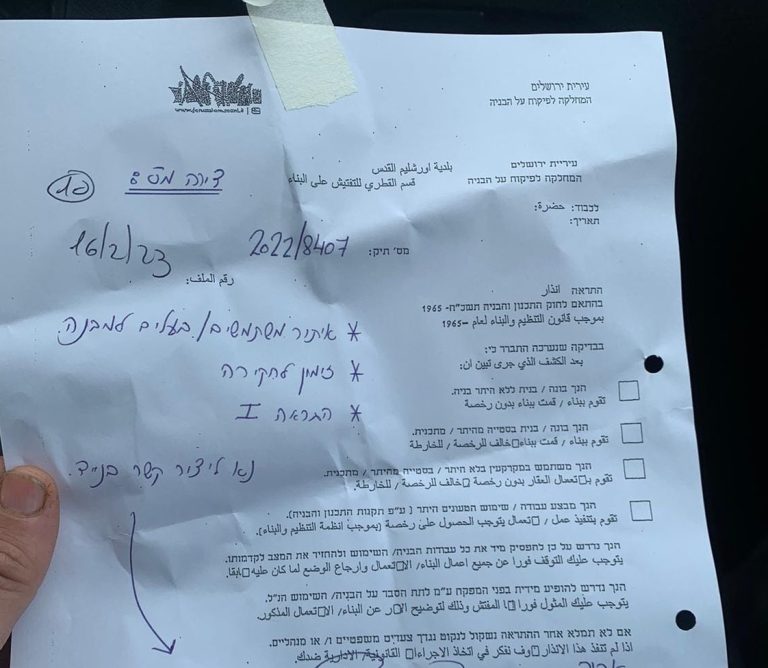 עירית ירושלים
המחלקה לפיקוח על הבניה
www.jerusalem.muni.il
עיריית ירושלים بلدية اورشليم القدس
המחלקה לפיקוח על הבניה قسم القطري للتفتيش على البناء
דירה מס 8
לכבוד: حضرة:
תאריך:
מס' תיק: 2022/8407 16/2/23
رقم الملف:
התראה انذار
בהתאם לחוק התכנון והבניה תשכ"ה- 1965
بموجب قانون التنظيم والبناء لعام –1965
* איתור משתמשים / בעלים למבנה.
בבדיקה שנערכה התברר לי:
بعد الكشف الذي جرى تبين ان:
* זימון לחקירה
הנך בונה / בנית ללא היתר בניה.
تقوم ببناء / قمت ببناء بدون رخصة
* התראה I
הנך בונה / בנית בסטייה מהיתר / מתכנית.
تقوم ببناء / قمت ببناء خالف للرخصة / للخارطة
נא ליצור קשר בנייד.
הנך משתמש במקרקעין בלא היתר / בסטייה מהיתר / מתכנית.
تقوم ب تعمال العقار بدون رخصة خالف للرخصة / للخارطة.
הנך מבצע עבודה / שימוש הטעונים היתר ( ע"פ תקנות התכנון והבניה).
تقوم بتنفيذ عمل / تعمال يتوجب الحصول على رخصة (بموجب انظمة التنظيم والبناء).
הנך נדרש על כן להפסיק מיד את כל עבודות הבניה/ השימוש ולהחזיר את המצב לקדמותו.
يتوجب عليك التوقف فورا عن جميع اعمال البناء/ الا تعمال وارجاع الوضع لما كان عليه ابقا.
הנך נדרש להופיע מידית בפני המפקח ע"מ לתת הסבר על הבניה/ השימוש הנ"ל.
يتوجب عليك المثول فورا ا المفتش وذلك لتوضيح الا ر عن البناء/ الا تعمال المذكور.
אם לא תמלא אחר ההתראה נשקול לנקוט נגדך צעדים משפטיים ו/ או מנהליים.
اذا لم تنفذ هذا الانذار وف نفكر في اتخاذ الاجراءا القانونية/ الادارية ضدك.